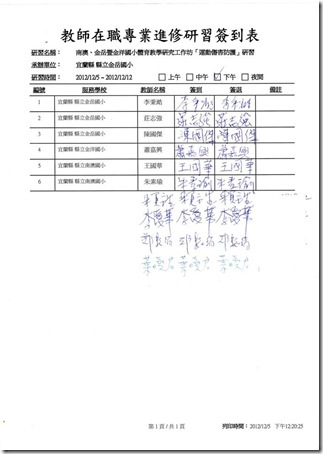 教師在職專業進修研習簽到表
研習名稱： 南澳、金岳暨金洋國小體育教學研究工作坊「運動傷害防護」研習
承辦單位： 宜蘭縣 縣立金岳國小
研習時間： 2012/12/5 ~ 2012/12/12 □上午 □中午 ☑下午 □夜間
編號 服務學校 教師名稱 簽到 簽退 備註
1 宜蘭縣 縣立金岳國小 李秉皓
2 宜蘭縣 縣立金岳國小 莊志強 莊志強 莊志強
3 宜蘭縣 縣立金洋國小 陳國傑 陳國傑 陳國傑
4 宜蘭縣 縣立金洋國小 蕭嘉興 蕭嘉興 蕭嘉興
5 宜蘭縣 縣立南澳國小 王國華 王國華 王國華
6 宜蘭縣 縣立南澳國小 朱素瑜
第 1 頁 / 共 1 頁 列印時間：2012/12/5 下午12:20:25